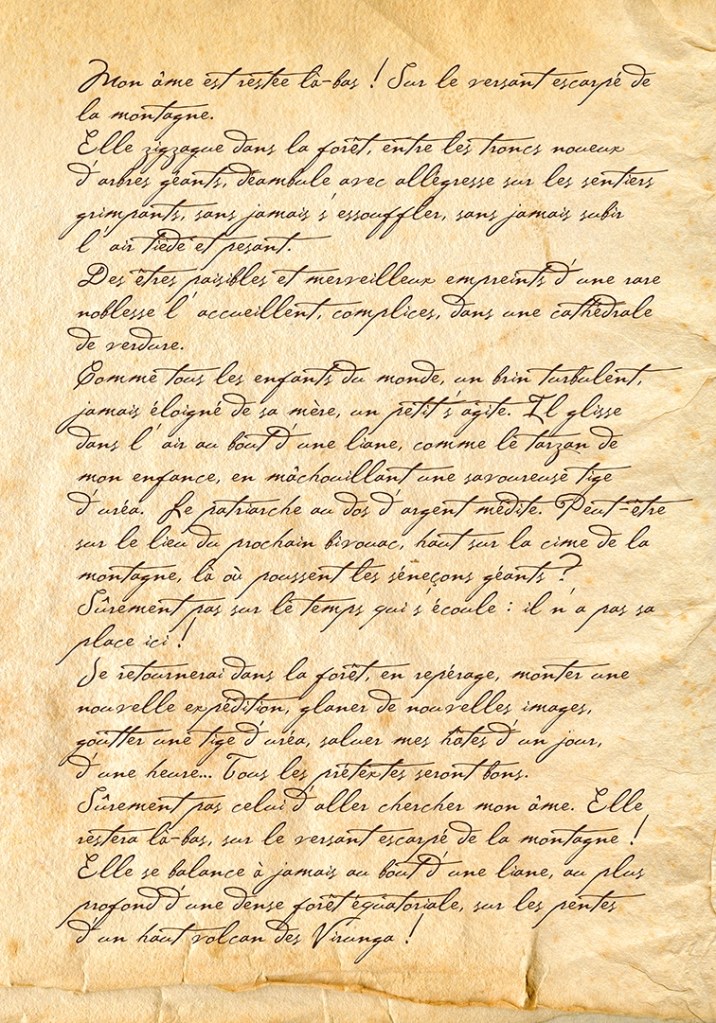 Mon âme est restée là-bas ! Sur le versant escarpé de
la montagne.
Elle zigzague dans la forêt, entre les troncs noueux
d'arbres géants, déambule avec allègresse sur les sentiers
grimpants, sans jamais s'essouffler, sans jamais subir
l'air tiède et pesant.
Des êtres paisibles et merveilleux empreints d'une rare
noblesse l'accueillent, complices, dans une cathédrale
de verdure.
Comme tous les enfants du monde, un brin turbulent,
jamais éloigné de sa mère, un petit s'agite. Il glisse
dans l'air au bout d'une liane, comme le tarzan de
mon enfance, en mâchouillant une savoureuse tige
d'uréa. Le patriarche au dos d'argent médite. Peut-être
sur le lieu du prochain bivouac, haut sur la cime de la
montagne, là où poussent les séneçons géants ?
Sûrement pas sur le temps qui s'écoule : il n'a pas sa
place ici !
Je retournerai dans la forêt, en repérage, monter une
nouvelle expédition, glaner de nouvelles images,
goûtter une tige d'uréa, saluer mes hôtes d'un jour,
d'une heure... Tous les prétextes seront bons.
Sûrement pas celui d'aller chercher mon âme. Elle
restera là-bas, sur le versant escarpé de la montagne !
Elle se balance à jamais au bout d'une liane, au plus
profond d'une dense forêt équatoriale, sur les pentes
d'un haut volcan des Virunga !